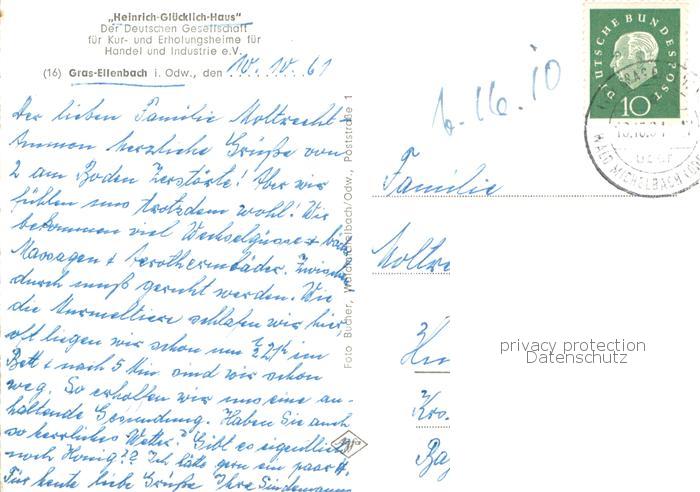 „Heinrich-Glücklich-Haus"
Der Deutschen Gesellschaft
für Kur- und Erholungsheime für
Handel und Industrie e.V.
(16) Gras-Ellenbach i. Odw., den 10. 10. 61
Der lieben Familie Moltrecht
immer herzliche Grüße von
2 am Boden Zerstörte! Aber wir
fühlen uns trotzdem wohl! Wir
bekommen viel Wechselgüsse +
Massagen + aerothermbäder. Zwischen
durch muß geruht werden. Wie
die Murmeltiere schlafen wir hier
oft liegen wir schon um 1/2 im
Bett + nach 5 Min sind wir schon
weg. So erhoffen wir uns eine an-
haltende Gesundung. Haben Sie auch
so herrliches Wetter? Gibt es eigentlich
noch Honig?? Ich hätte gern ein paar
Für heute liebe Grüße Ihre Lindemanns
Foto Bucher, Wald-Michelbach/Odw., Poststraße 1
Agfa
6.-16.10
DEUTSCHE BUNDESPOST
10
WALD MICHELBACH
Familie
Moltre
privacy protection
Datenschutz